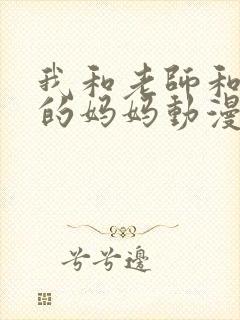 我和老師和
的妈妈動漫
兮兮邊